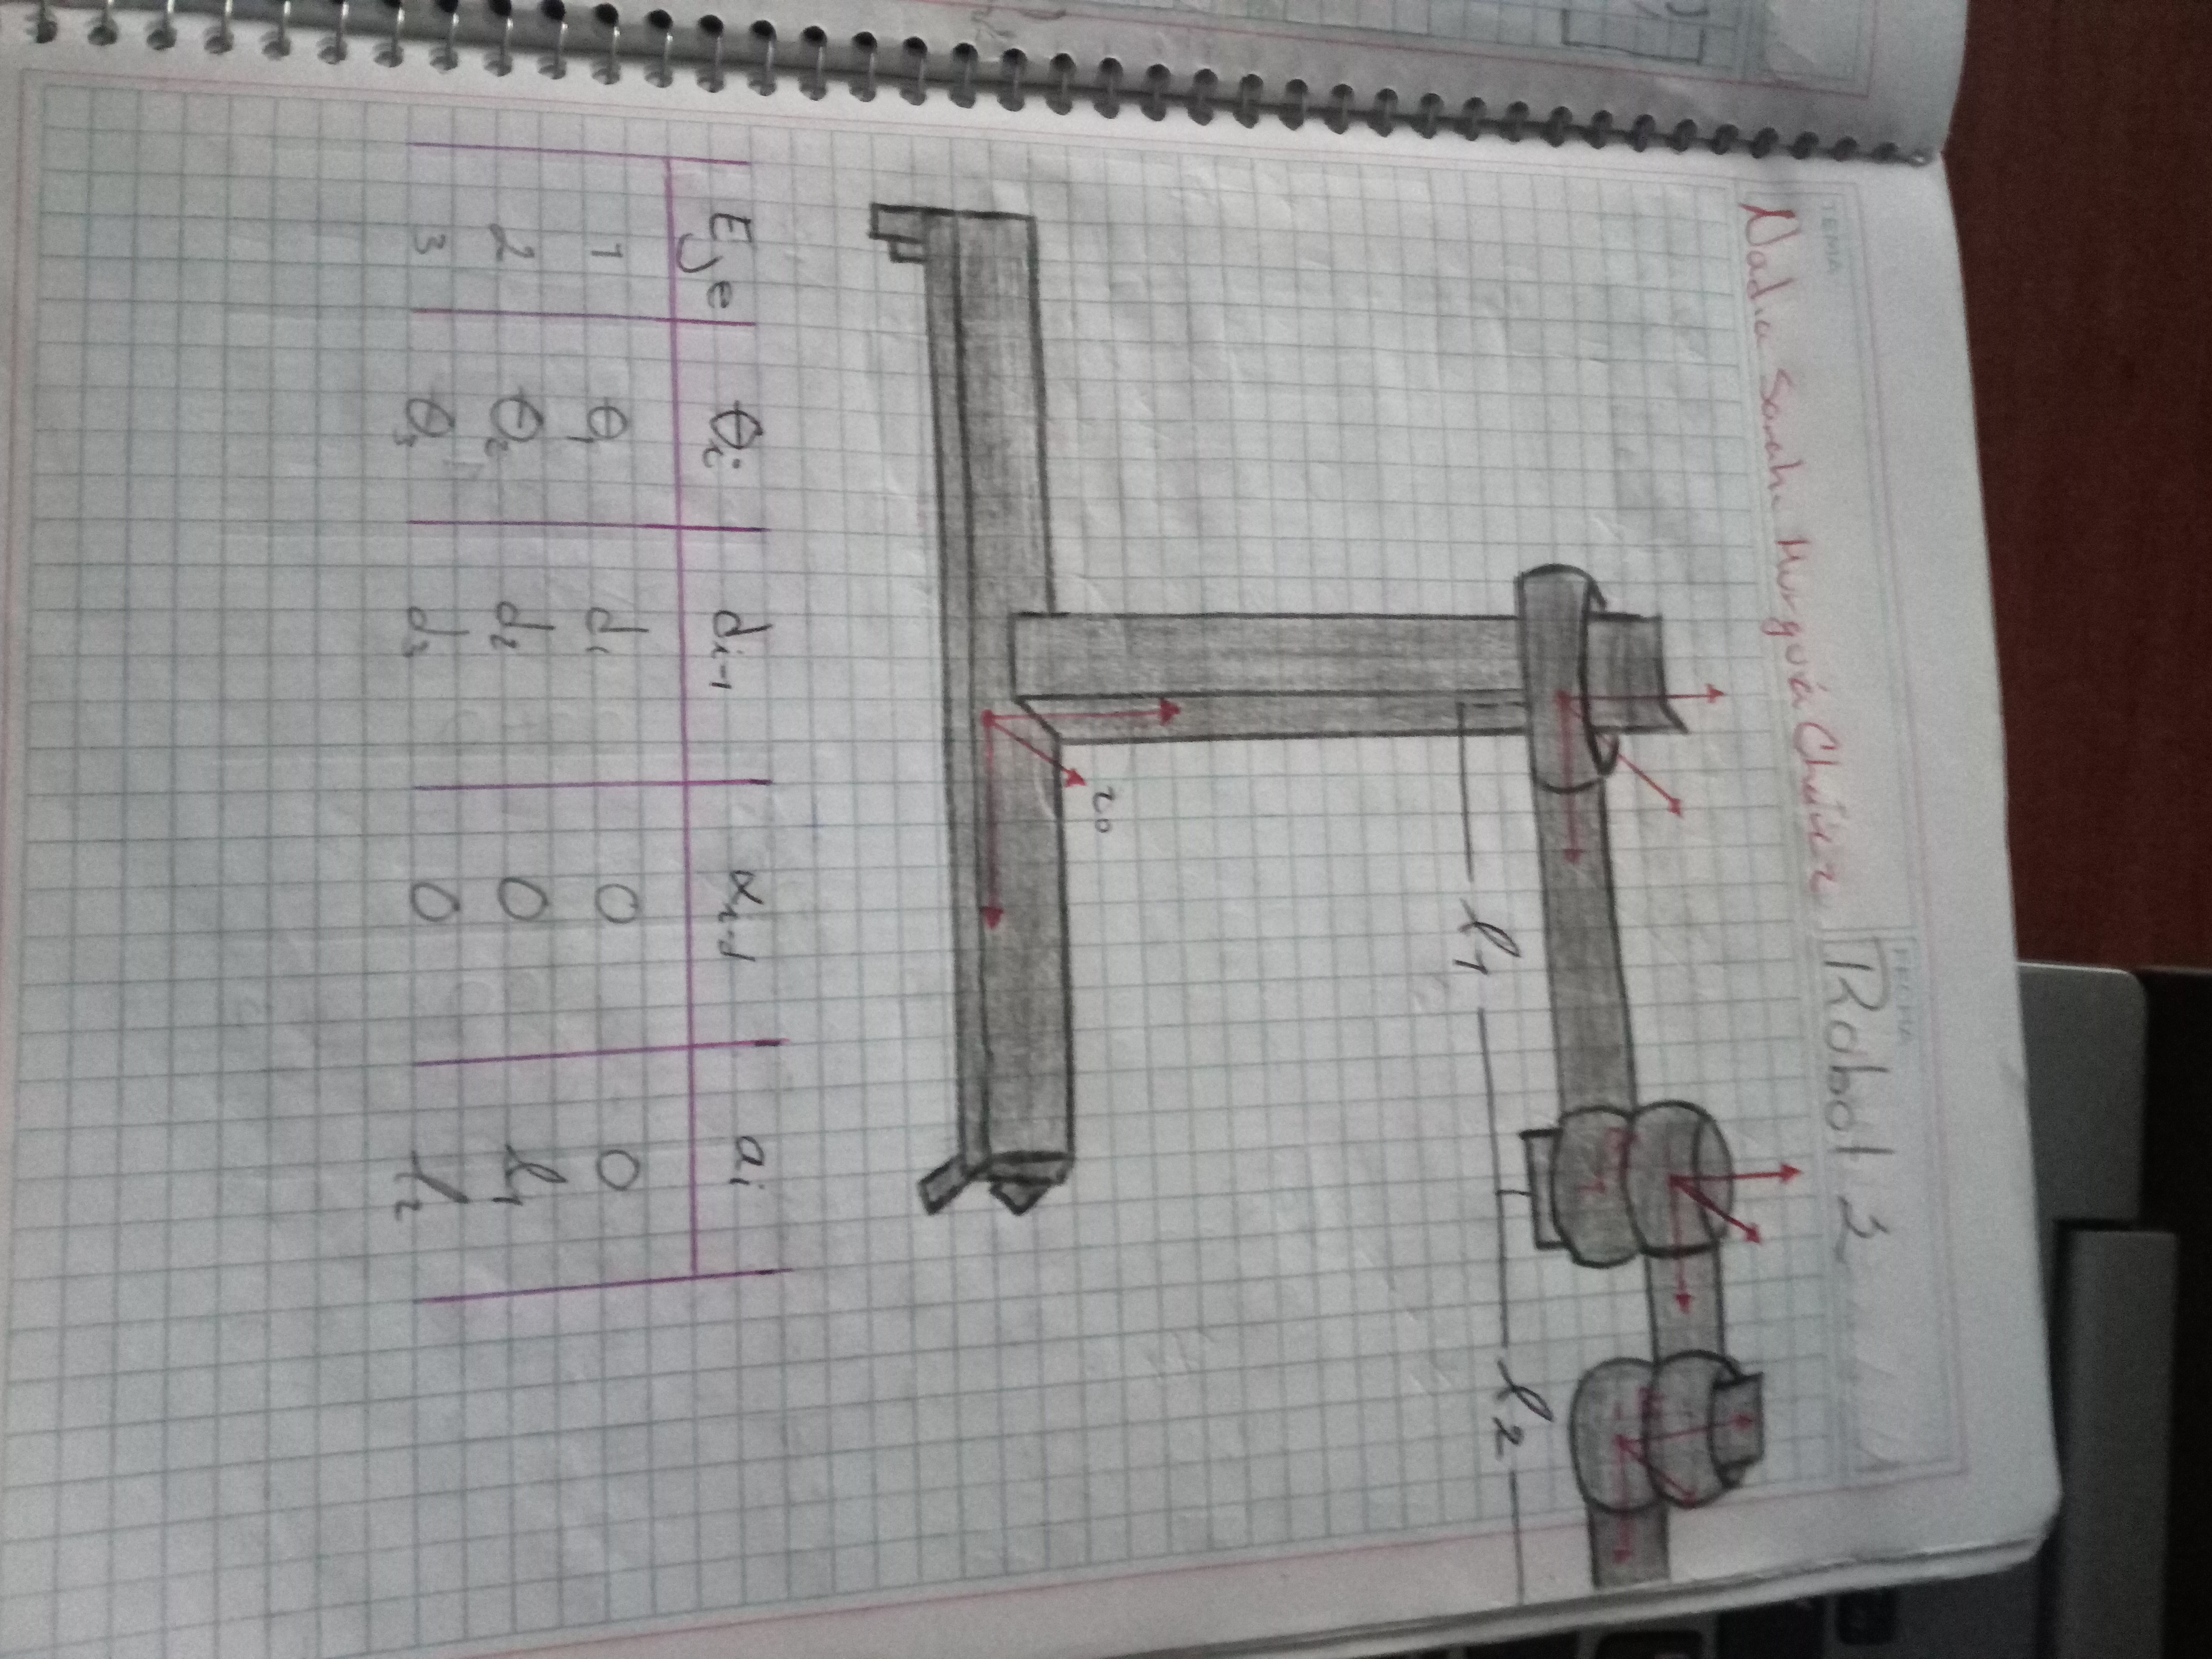 TEMA
FECHA
Nadia Sarahi Murguía Chávez
Robot 2
l1
l2
z0
Eje | θi | di-1 | αi-1 | ai
1 | θ1 | d1 | 0 | 0
2 | θ2 | d2 | 0 | l1
3 | θ3 | d3 | 0 | l2